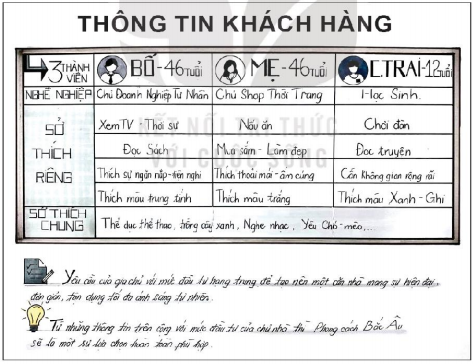 THÔNG TIN KHÁCH HÀNG
3 THÀNH VIÊN BỐ-46 TUỔI MẸ-46 TUỔI C.TRAI-12 TUỔI
NGHỀ NGHIỆP Chủ Doanh Nghiệp Tư Nhân Chủ Shop Thời Trang Học Sinh.
SỞ THÍCH RIÊNG
Xem TV - Thời sự Nấu ăn Chơi đàn
Đọc Sách Mua sắm - Làm đẹp Đọc truyện
Thích sự ngăn nắp-tiện nghi Thích thoải mái-ấm cúng Cần không gian rộng rãi
Thích màu trung tính Thích màu trắng Thích màu Xanh - Ghi
SỞ THÍCH CHUNG Thể dục thể thao, trồng cây xanh, Nghe nhạc, Yêu Chó-mèo,...
KẾT NỐI TRI THỨC
VỚI CUỘC SỐNG
Yêu cầu của gia chủ với mức đầu tư hạng trung để tạo nên một căn nhà mang sự hiện đại,
đơn giản, tận dụng tối đa ánh sáng tự nhiên.
Từ những thông tin trên cộng với mức đầu tư của chủ nhà thì Phong cách Bắc Âu
sẽ là một sự lựa chọn hoàn toàn phù hợp.